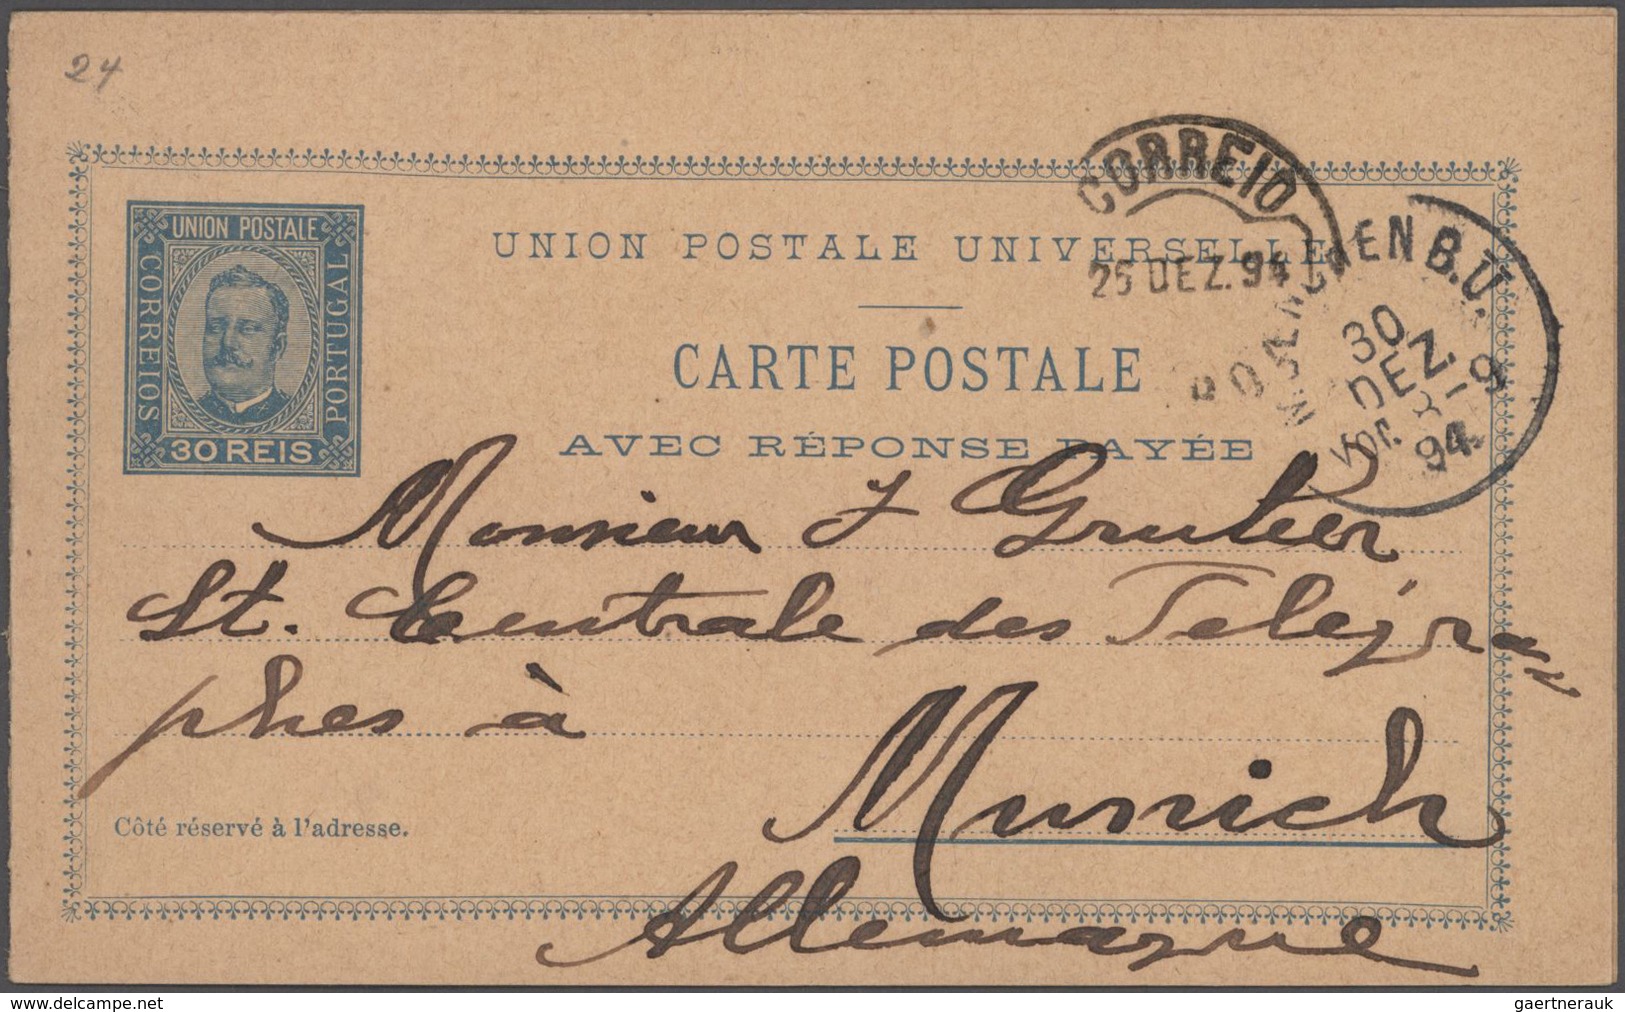 24
UNION POSTALE
CORREIOS
PORTUGAL
30 REIS
UNION POSTALE UNIVERSELLE
CARTE POSTALE
AVEC RÉPONSE PAYÉE
CORREIO
25 DEZ. 94
MUENCHEN B.U.
30
DEZ.
Vor. 8-9
94.
Monsieur J Gruber
St. Centrale des Télégra=
phes à
Munich
Allemagne
Côté réservé à l'adresse.
delcampe.net
gaertnerauk